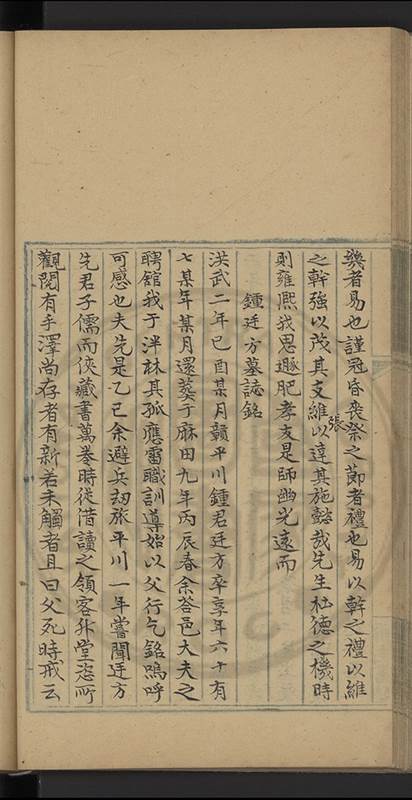 獎者易也謹冠昏喪祭之節者禮也易以幹之禮以維
之幹強以茂其支維以張達其施懿哉先生杜德之機時
則雍熙我思遯肥孝友是師幽光遠而
鍾廷方墓誌銘
洪武二年已酉某月贛平川鍾君廷方卒享年六十有
七某年某月還葬于麻田九年丙辰春余荅邑大夫之
聘館我于泮林其孤應雷職訓導始以父行乞銘嗚呼
可感也夫先是乙巳余避兵刼旅平川一年嘗聞廷方
先君子儒而俠藏書萬卷時從借讀之領客升堂恣所
觀閱有手澤尚存者有新若未觸者且曰父死時戒云